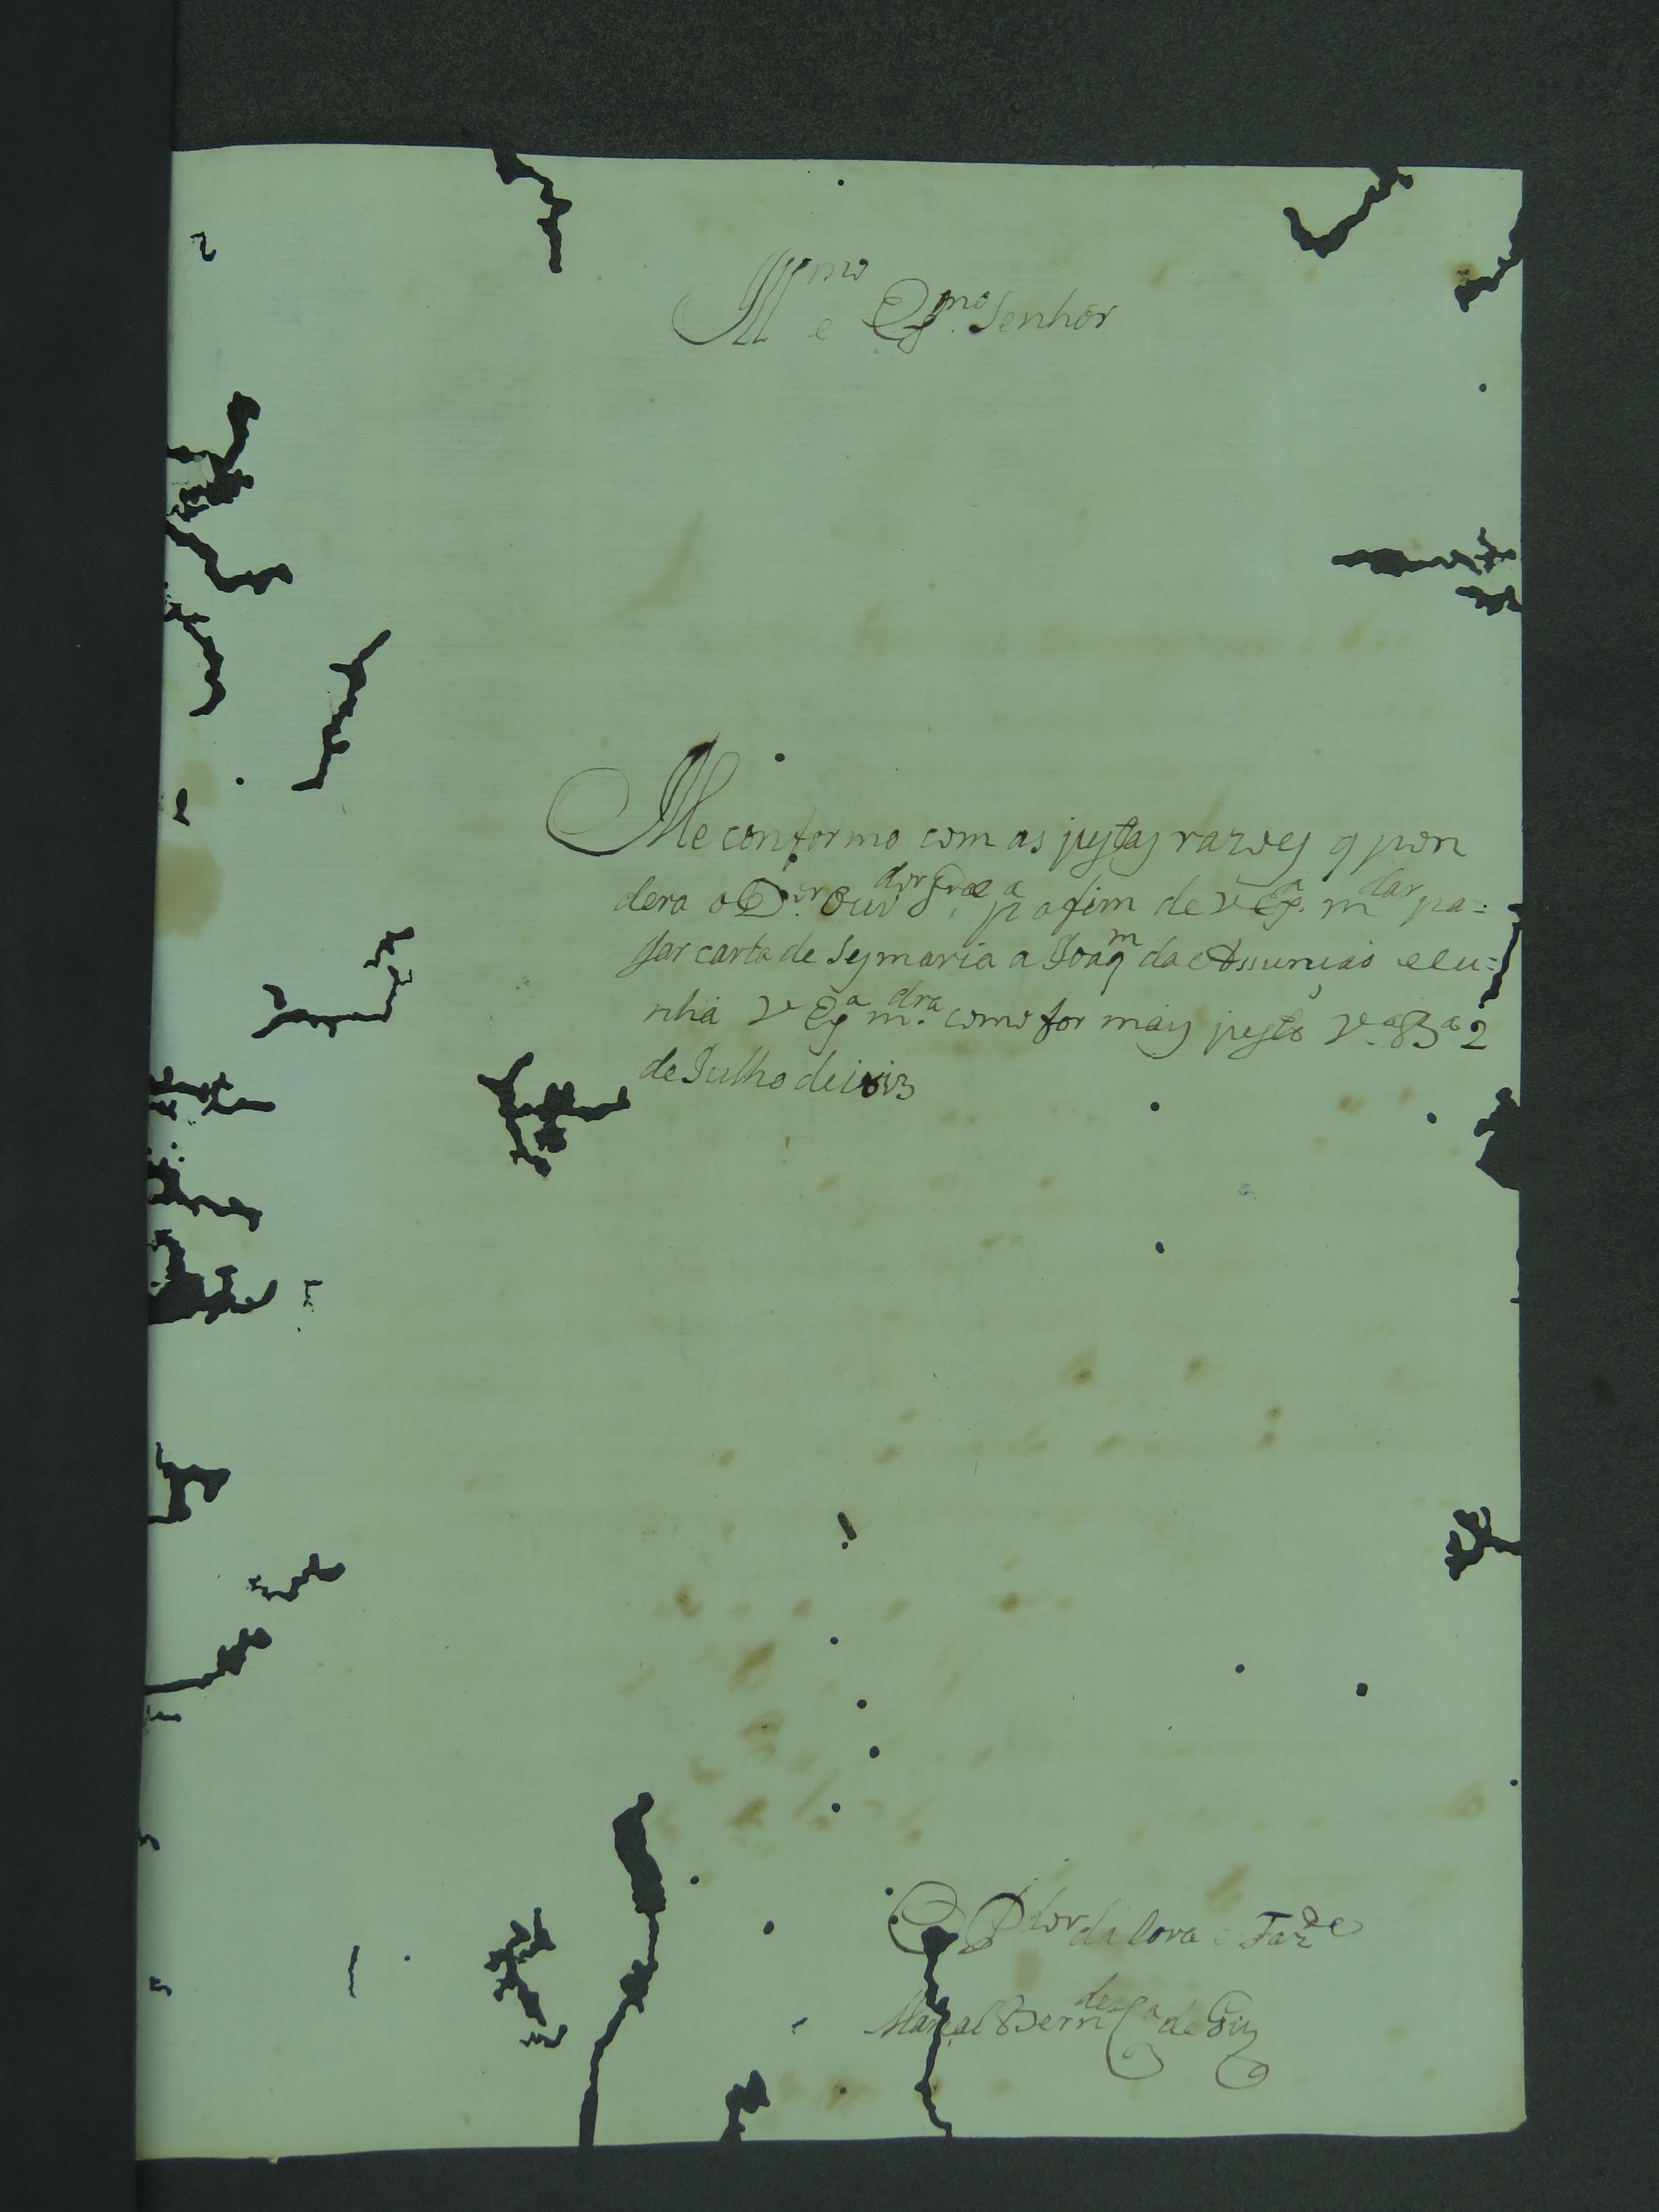 Illmo e Exmo Senhor
Me conformo com as justas razoes q pon
dera o D.or Ouv.dor pa o fim de V Exa mdar pa=
sar carta de Sesmaria a Joaqm da Assunçaõ eCu=
nha V Exa m.dra como for mais justo Va Ba 2
de Julho de 1813
O P.dor da Coroa e Fazde
Marçal Berndes Ca de